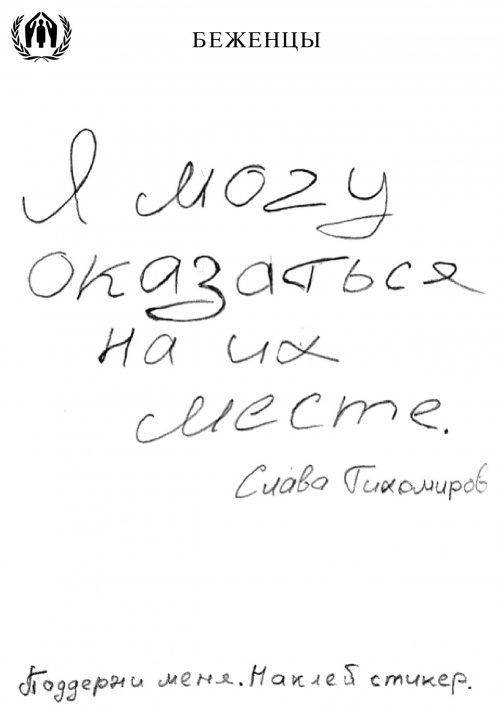 БЕЖЕНЦЫ
Я могу
оказаться
на их
месте.
Слава Тихомиров
Поддержи меня. Наклей стикер.